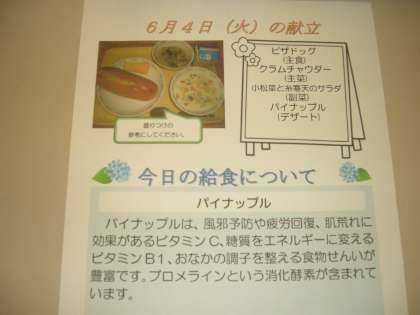 6月4日（火）の献立
ピザドッグ
(主食)
クラムチャウダー
(主菜)
小松菜と糸寒天のサラダ
(副菜)
パイナップル
(デザート)
盛りつけの
参考にしてください。
今日の給食について
パイナップル
パイナップルは、風邪予防や疲労回復、肌荒れに
効果があるビタミンC、糖質をエネルギーに変える
ビタミンB1、おなかの調子を整える食物せんいが
豊富です。プロメラインという消化酵素が含まれて
います。